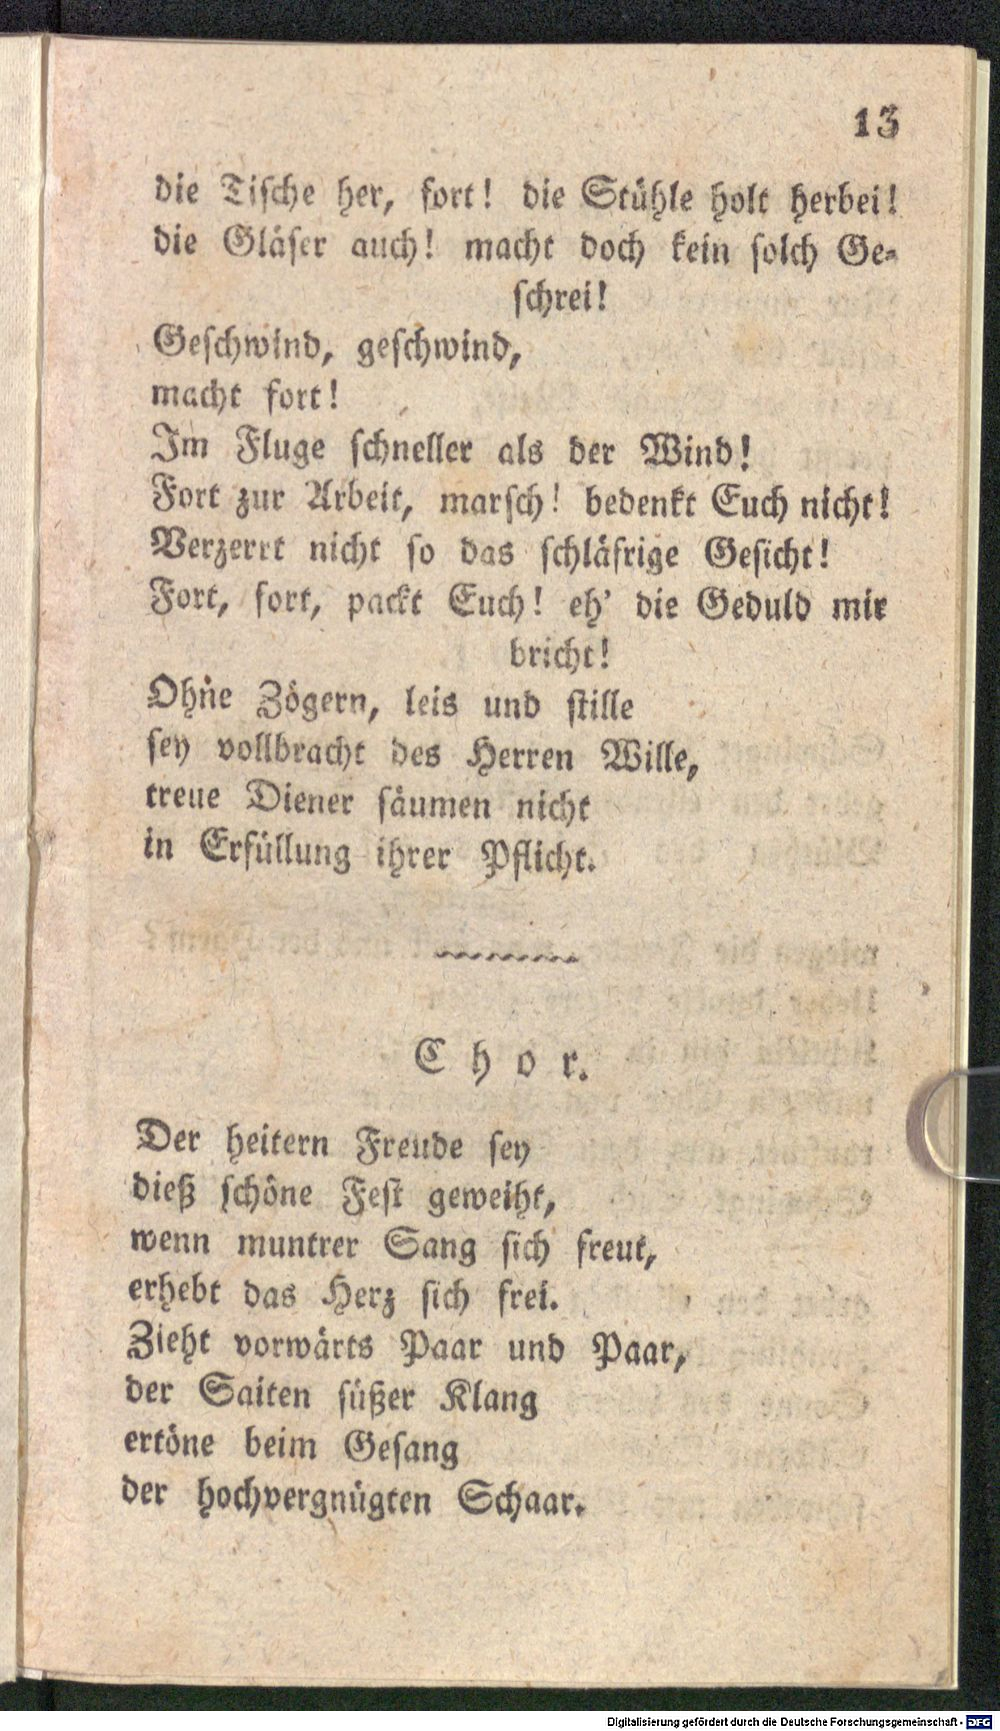 13
die Tiſche her, fort! die Stühle holt herbei!
die Gläſer auch! macht doch kein ſolch Ge-
ſchrei!
Geſchwind, geſchwind,
macht fort!
Im Fluge ſchneller als der Wind!
Fort zur Arbeit, marſch! bedenkt Euch nicht!
Verzerrt nicht ſo das ſchläfrige Geſicht!
Fort, fort, packt Euch! eh' die Geduld mir
bricht!
Ohne Zögern, leis und ſtille
ſey vollbracht des Herren Wille,
treue Diener ſäumen nicht
in Erfüllung ihrer Pflicht.
Chor.
Der heitern Freude ſey
dieß ſchöne Feſt geweiht,
wenn muntrer Sang ſich freut,
erhebt das Herz ſich frei.
Zieht vorwärts Paar und Paar,
der Saiten ſüßer Klang
ertöne beim Geſang
der hochvergnügten Schaar.
Digitalisierung gefördert durch die Deutsche Forschungsgemeinschaft - DFG